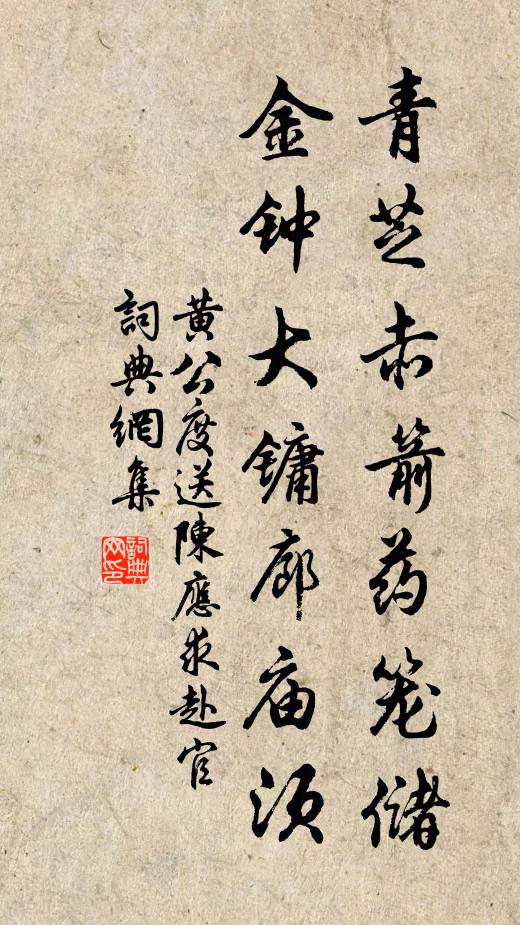 青芝赤箭药笼储
金钟大镛廊庙须
黄公度送陳應求赴官
詞典網集
詞典
网印